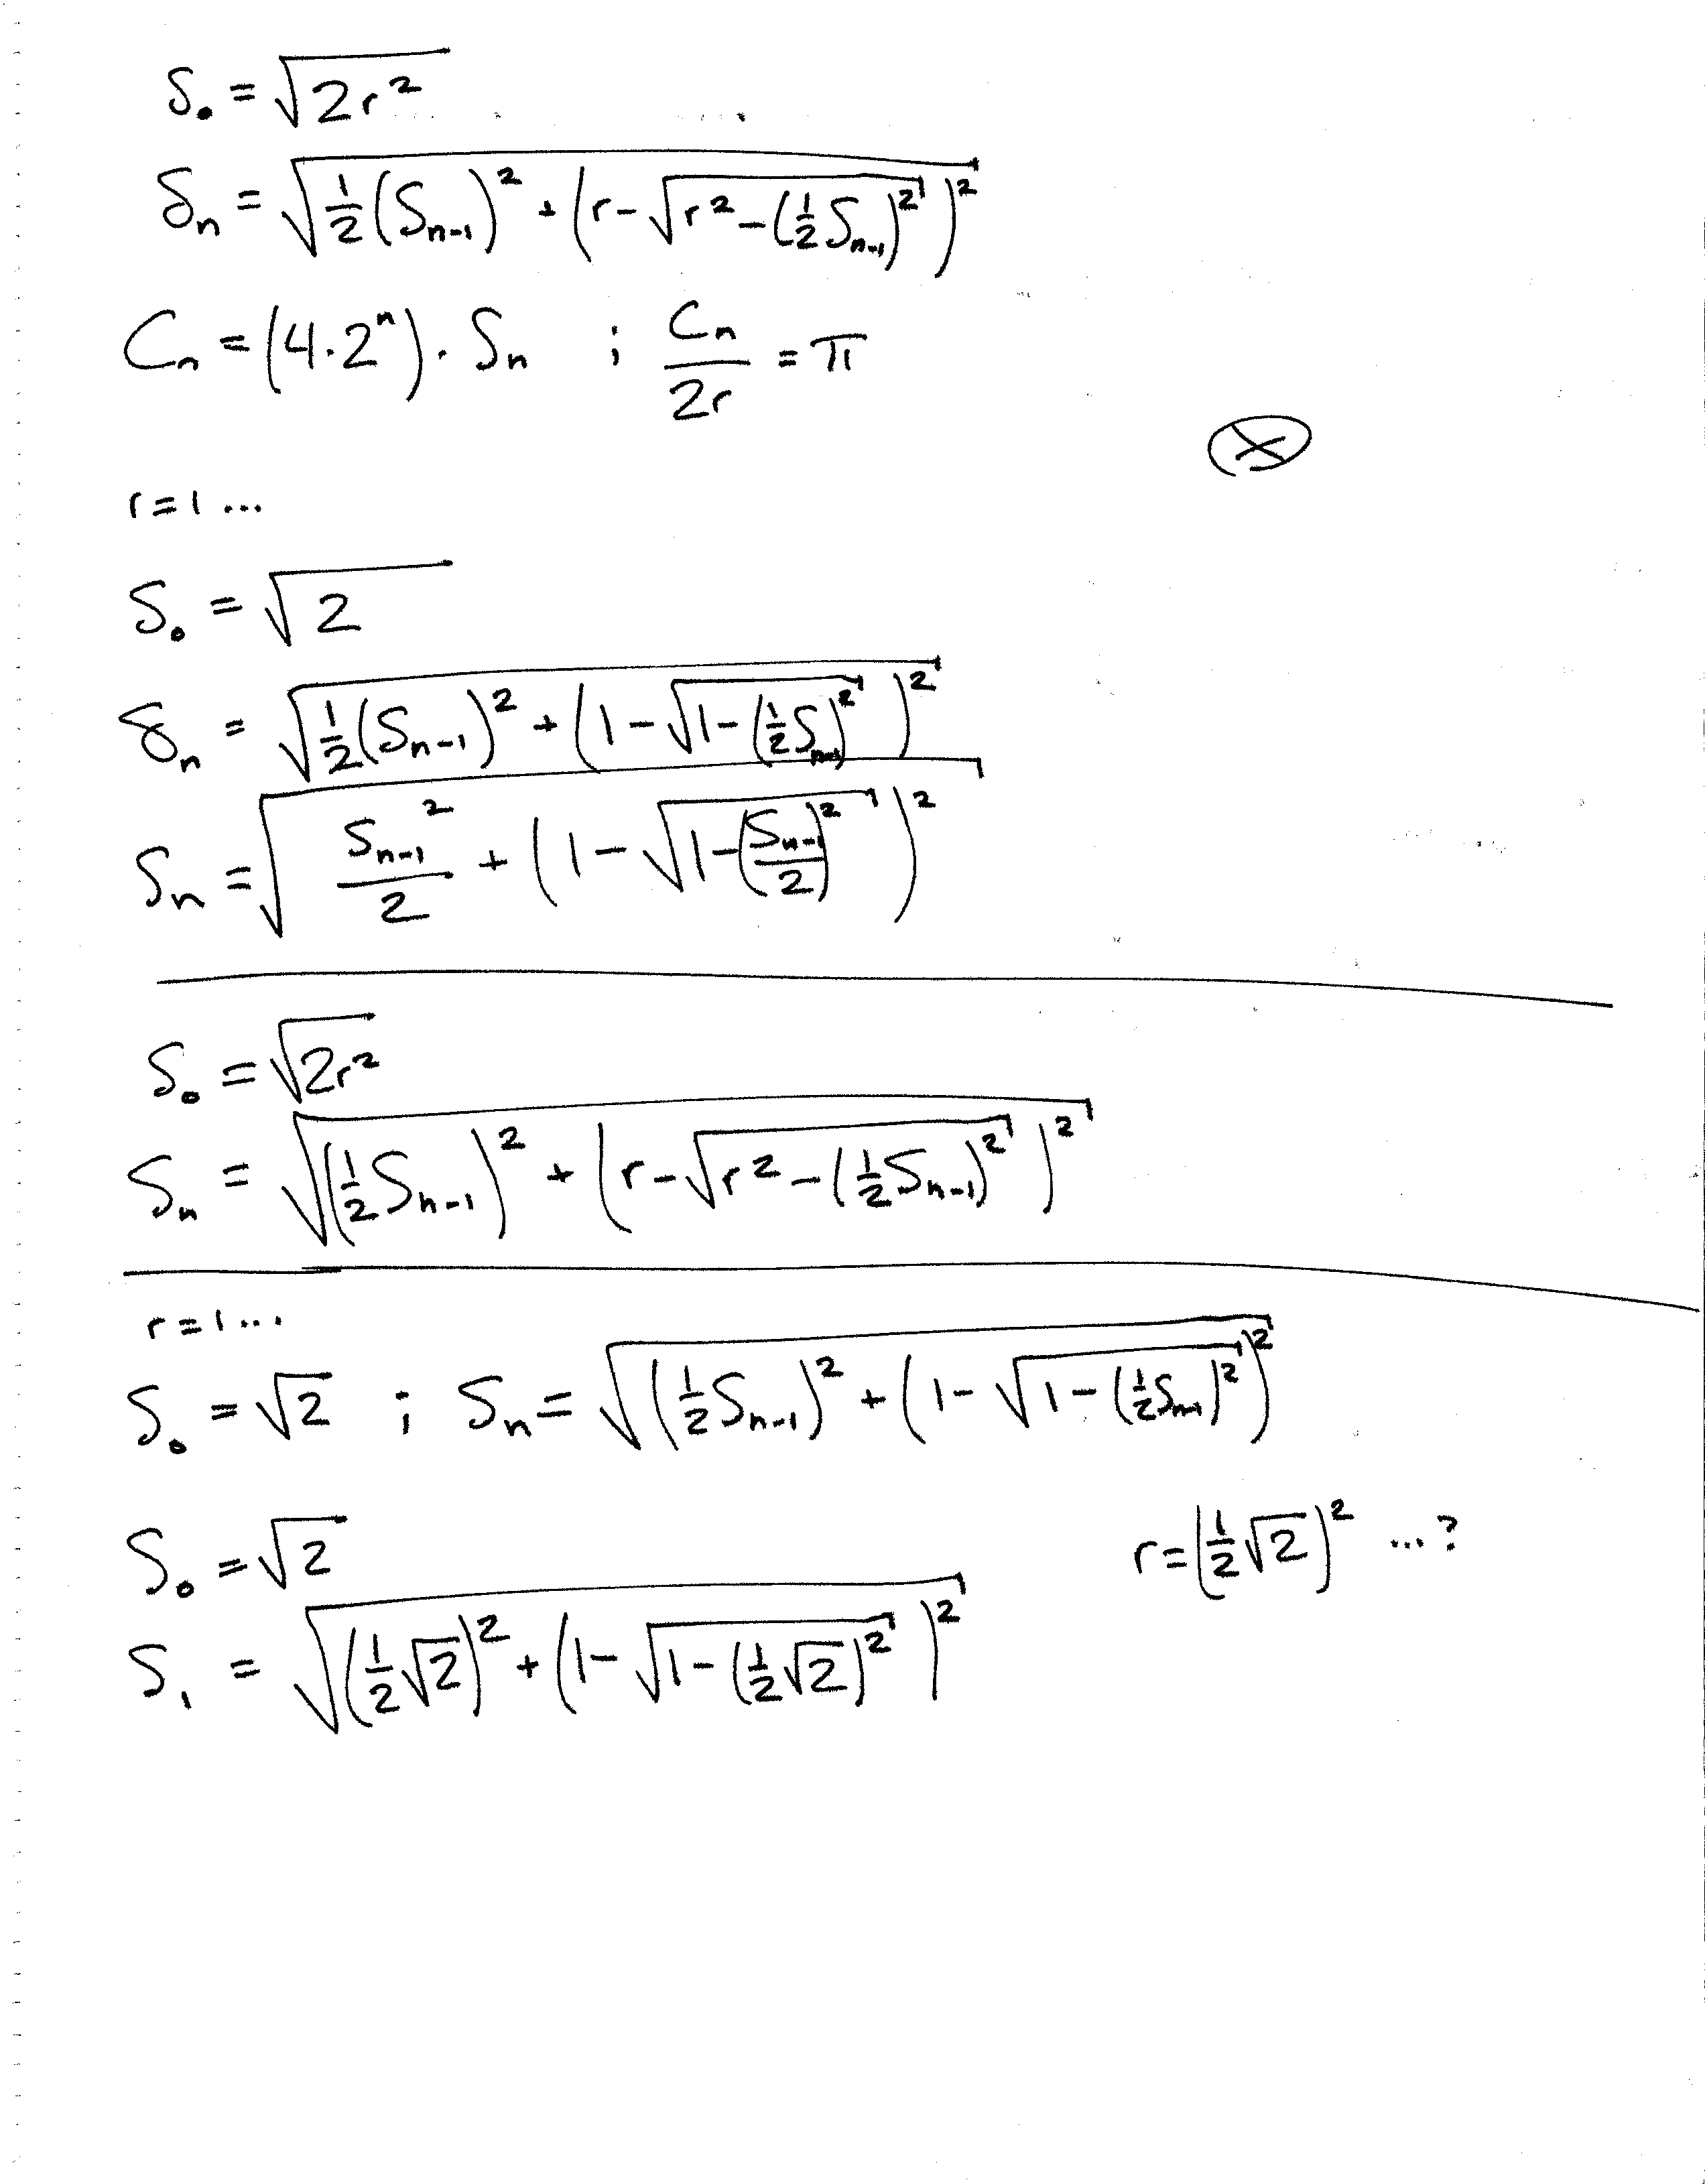 S₀ = √(2r²)
Sₙ = √(½(Sₙ₋₁)² + (r-√(r²-(½Sₙ₋₁)²))²)
Cₙ = (4·2ⁿ)·Sₙ ; Cₙ/2r = π
r=1 ...
S₀ = √2
Sₙ = √(½(Sₙ₋₁)² + (1-√(1-(½Sₙ₋₁)²))²)
Sₙ = √(Sₙ₋₁²/2 + (1-√(1-(Sₙ₋₁/2)²))²)
S₀ = √(2r²)
Sₙ = √((½Sₙ₋₁)² + (r-√(r²-(½Sₙ₋₁)²))²)
r=1...
S₀ = √2 ; Sₙ = √((½Sₙ₋₁)² + (1-√(1-(½Sₙ₋₁)²))²)
S₀ = √2
r=(½√2)² ...?
S₁ = √((½√2)² + (1-√(1-(½√2)²))²)